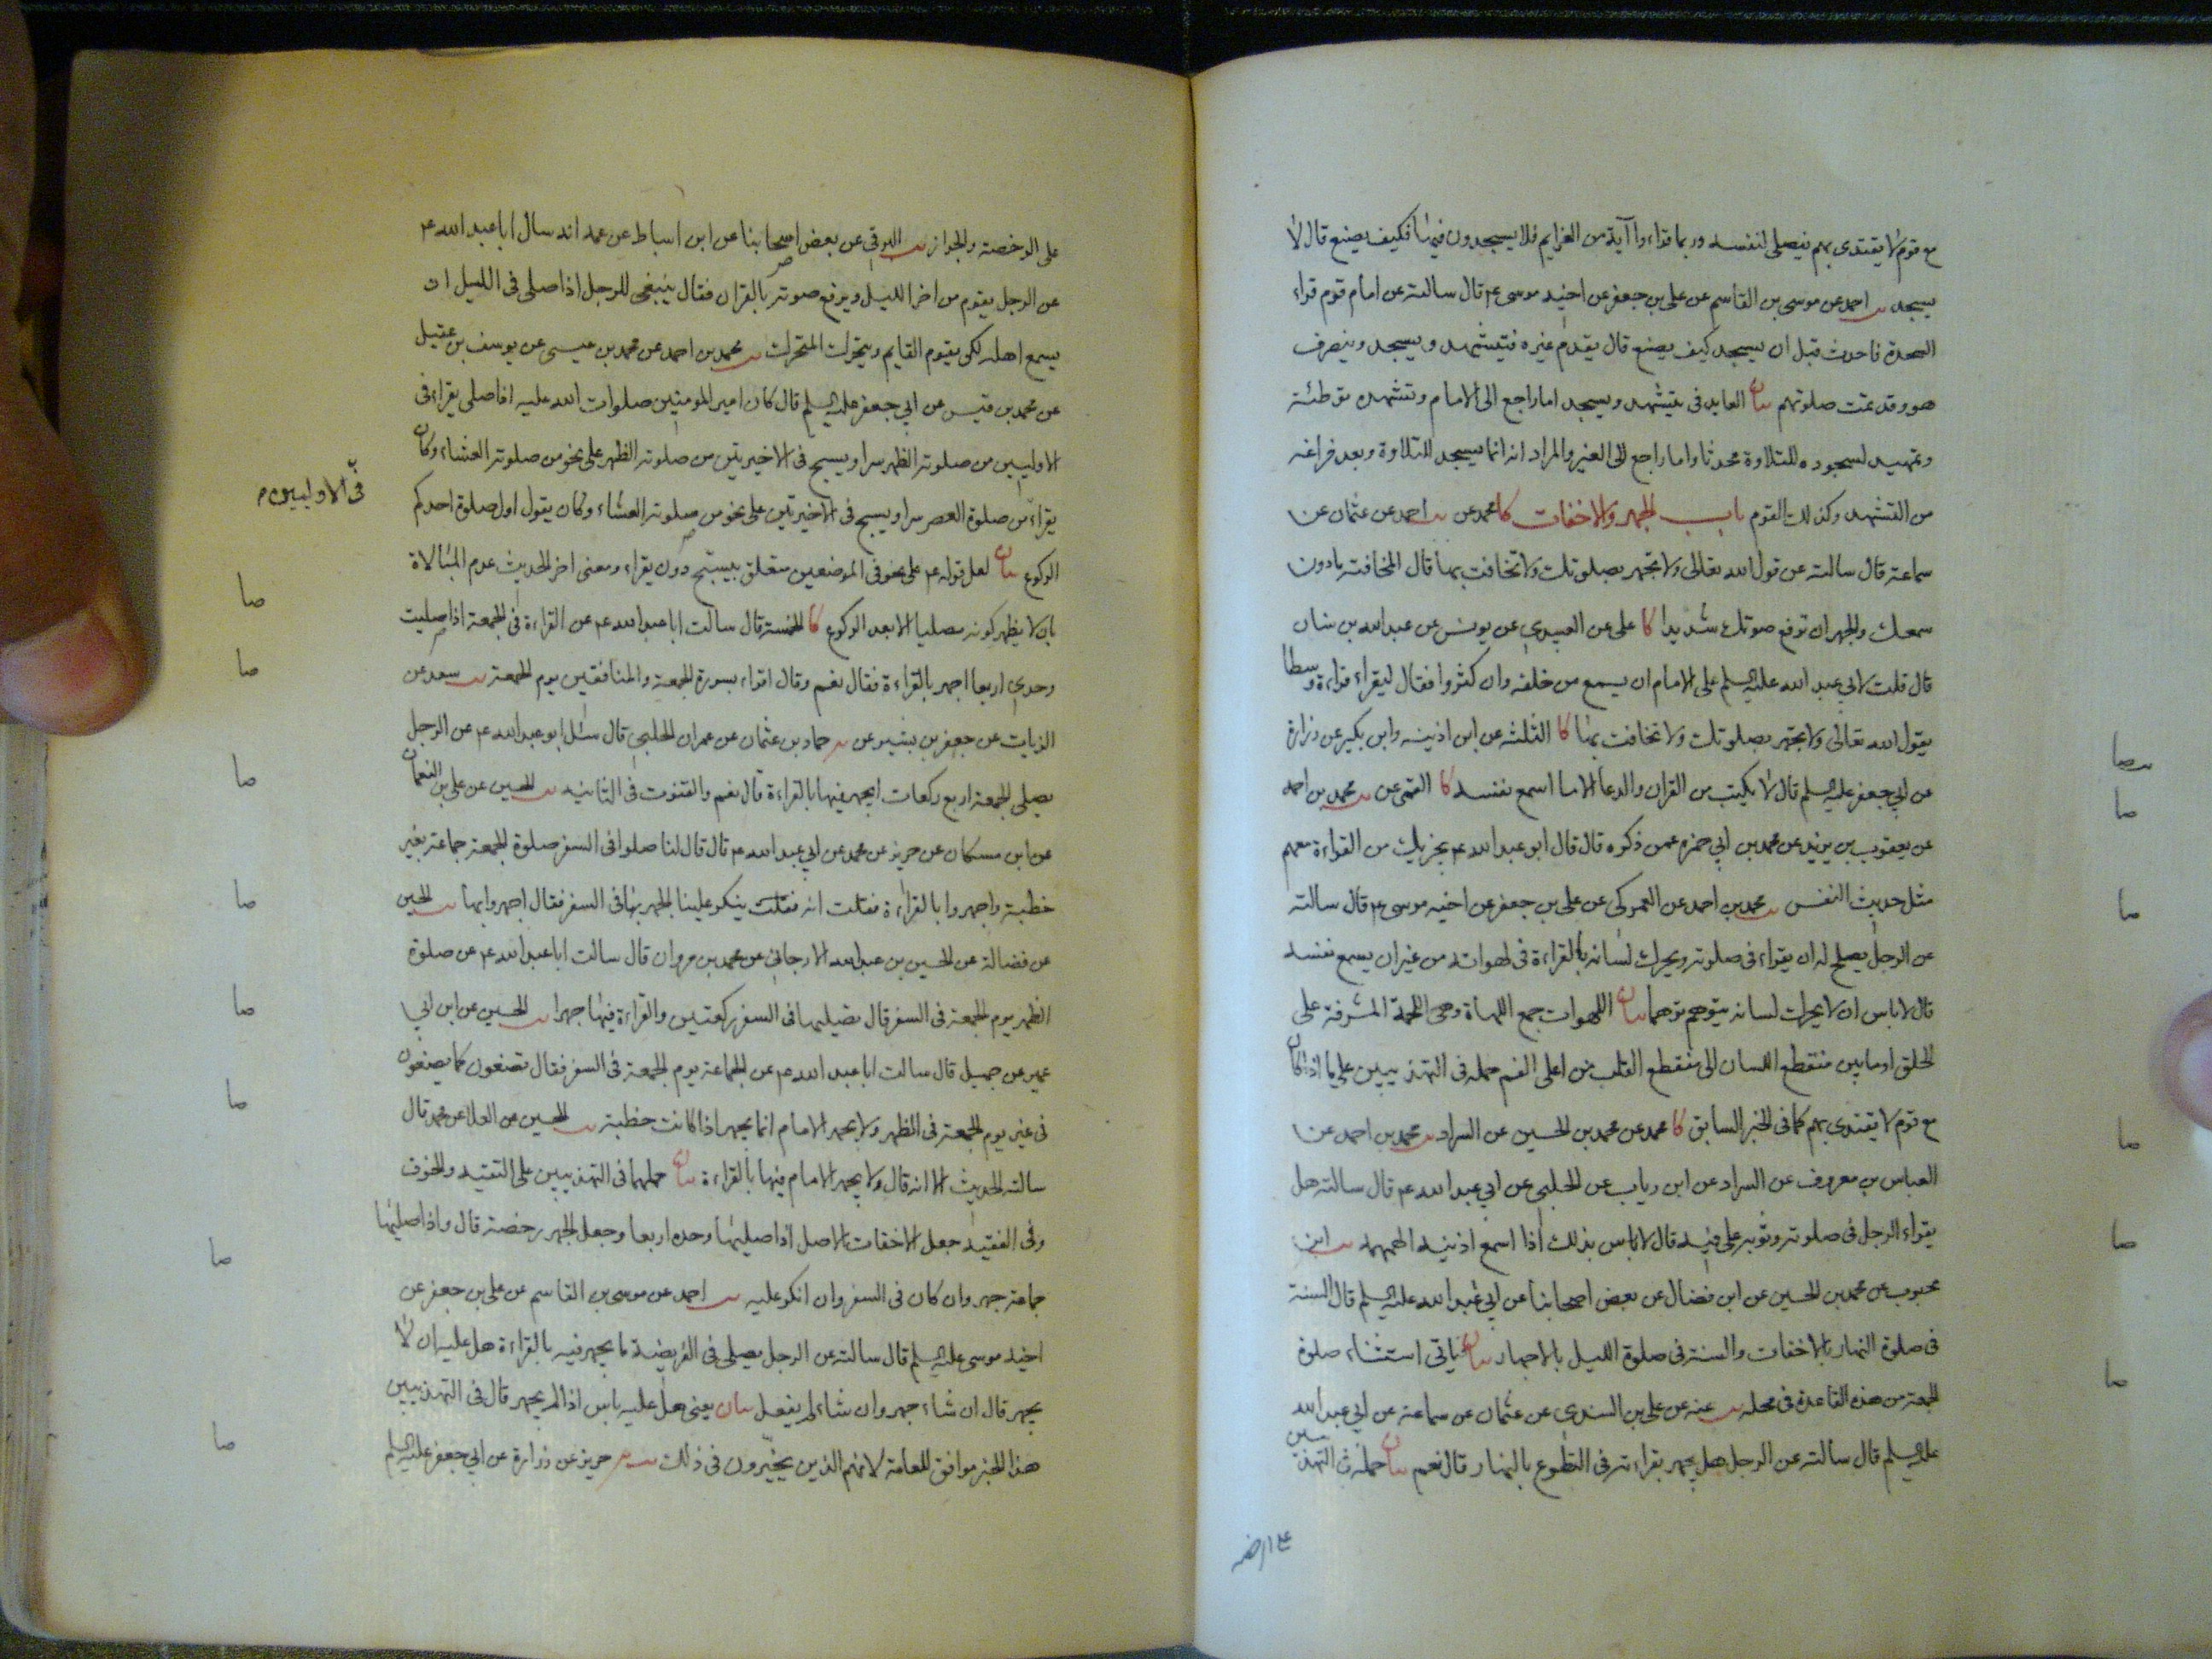 مع قوم لا يقتدى بهم فيصلى لنفسه وربما قراءوا آية من العزايم فلا يسجدون فيها فكيف يصنع قال لا
يسجد يب احمد عن موسى بن القاسم عن على بن جعفر عن اخيه موسى ع قال سالته عن امام قوم قراء
السجدة فاحدث قبل ان يسجد كيف يصنع قال يقدم غيره فيتشهد ويسجد وينصرف
هو وقد تمت صلوتهم بيان العايد فى يتشهد ويسجد اما راجع الى الامام وتشهده توطئة
وتمهيد لسجوده للتلاوة محدثا واما راجع الى الغير والمراد انه انما يسجد للتلاوة وبعد فراغه
من التشهد وكذلك القوم باب الجهر والاخفات كا محمد عن يب احمد عن عثمان عن
سماعة قال سالته عن قول الله تعالى ولا تجهر بصلوتك ولا تخافت بها قال المخافتة مادون
سمعك والجهر ان ترفع صوتك شديدا كا على عن العبيدى عن يونس عن عبدالله بن سنان
قال قلت لابي عبد الله عليه السلم على الامام ان يسمع من خلفه وان كثروا فقال ليقراء قراءة وسطا
يقول الله تعالى ولا تجهر بصلوتك ولا تخافت بها كا الثلثه عن ابن اذينه وابن بكير عن زرارة
عن ابي جعفر عليه السلم قال لا يكتب من القران والدعا الا ما اسمع نفسه كا القمى عن يب محمد بن احمد
عن يعقوب بن يزيد عن محمد بن ابي حمزه عمن ذكره قال قال ابو عبد الله ع يجزيك من القراءة معهم
مثل حديث النفس يب محمد بن احمد عن العمركى عن على بن جعفر عن اخيه موسى ع قال سالته
عن الرجل يصلح له ان يقراء فى صلوته ويحرك لسانه بالقراءة فى لهواته من غير ان يسمع نفسه
قال لا باس ان لا يحرك لسانه يتوهم توهما بيان اللهوات جمع اللهاة وهى اللحمة المشرفة على
الحلق او ما بين منقطع اللسان الى منقطع القلب من اعلى الفم حمله فى التهذيبين على ما اذا كان
مع قوم لا يقتدى بهم كما فى الخبر السابق كا محمد عن محمد بن الحسين عن السراد يب محمد بن احمد عن
العباس بن معروف عن السراد عن ابن رياب عن الحلبي عن ابي عبد الله ع قال سالته هل
يقراء الرجل فى صلوته وثوبه على فيه قال لا باس بذلك اذا اسمع اذنيه الهمهمه يب ابن
محبوب عن محمد بن الحسين عن ابن فضال عن بعض اصحابنا عن ابي عبد الله عليه السلم قال السنة
فى صلوة النهار بالاخفات والسنة فى صلوة الليل بالاجهار بيان ياتى استثناء صلوة
الجمعة من هذه القاعدة فى محله يب عنه عن على بن السندى عن عثمان عن سماعة عن ابي عبد الله
عليه السلم قال سألته عن الرجل هل يجهر بقراءته فى التطوع بالنهار قال نعم بيان حمله فى التهذيبين
صا
صا
صا
صا
صا
صا
على الرخصة والجواز يب البرقي عن بعض اصحابنا عن ابن اسباط عن عمه انه سال ابا عبد الله ع
عن الرجل يقوم من اخر الليل ويرفع صوته بالقران فقال ينبغى للرجل اذا صلى فى الليل ان
يسمع اهله لكى يقوم القايم ويتحرك المتحرك يب محمد بن احمد عن محمد بن عيسى عن يوسف بن عقيل
عن محمد بن قيس عن ابي جعفر عليه السلم قال كان امير المومنين صلوات الله عليه اذا صلى يقراء فى
الاوليين من صلوته الظهر سرا ويسبح فى الاخيرتين من صلوته الظهر على نحو من صلوته العشاء وكان
فى الاوليين
يقراء من صلوة العصر سرا ويسبح فى الاخيرتين على نحو من صلوته العشاء وكان يقول اول صلوة احدكم
الركوع بيان لعل قوله ع على نحو فى الموضعين متعلق بيسبح دون يقراء ومعنى اخر الحديث عدم المبالاة
بان لا يظهر كونه مصليا الا بعد الركوع كا الخمسة قال سالت ابا عبد الله ع عن القراءة فى الجمعة اذا صليت
وحدى اربعا اجهر بالقراءة فقال نعم وقال اقراء بسورة الجمعة والمنافقين يوم الجمعة يب سعد عن
الزيات عن جعفر بن بشير عن حماد بن عثمان عن عمران الحلبي قال سئل ابو عبد الله ع عن الرجل
يصلى الجمعة اربع ركعات ايجهر فيها بالقراءة قال نعم والقنوت فى الثانيه يب الحسين عن على بن النعمان
عن ابن مسكان عن حريز عن محمد عن ابي عبد الله ع قال قال لنا صلوا فى السفر صلوة الجمعة جماعة بغير
خطبة واجهروا بالقراءة فقلت انه ينكر علينا الجهر بها فى السفر فقال اجهروا بها يب الحسين
عن فضالة عن الحسين بن عبد الله الارجانى عن محمد بن مروان قال سالت ابا عبد الله ع عن صلوة
الظهر يوم الجمعة فى السفر قال تصليها فى السفر ركعتين والقراءة فيها جهرا يب الحسين عن ابن ابي
عمير عن جميل قال سالت ابا عبد الله ع عن الجماعة يوم الجمعة فى السفر فقال تصنعون كما يصنعون
فى غير يوم الجمعة فى الظهر ولا يجهر الامام انما يجهر اذا كانت خطبة يب الحسين عن العلا عن محمد قال
سالته الحديث الا انه قال ولا يجهر الامام فيها بالقراءة بيان حملهما فى التهذيبين على التقية والخوف
وفى الفقيه جعل الاخفات الاصل اذا صليتها وحده اربعا وجعل الجهر رخصة قال واذا صليتها
جماعة جهر وان كان فى السفر وان انكر عليه يب احمد عن موسى بن القاسم عن على بن جعفر عن
اخيه موسى عليه السلم قال سالته عن الرجل يصلى فى الفريضة ما يجهر فيه بالقراءة هل عليه ان لا
يجهر قال ان شاء جهر وان شاء لم يفعل بيان يعنى هل عليه باس اذا لم يجهر قال فى التهذيبين
هذا الخبر موافق للعامة لانهم الذين يخيرون فى ذلك حريز عن زرارة عن ابي جعفر عليه السلم
صا
صا
صا
صا
صا
صا
صا
صا